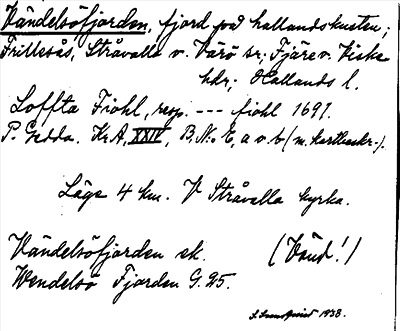 Vändelsöfjorden, fjord på hallandskusten;
Frillesås, Stråvalla o. Värö sr; Fjäre o. Viske
hdr; Hallands l.
Loffta Fiohl, resp. --- fiohl 1697.
P. Gedda. Kr.A. XXIV, B, No. E, a o. b (m. kartbeskr.).
Läge 4 km. V Stråvalla kyrka.
Vändelsöfjorden ek. (Vänd!)
Wendelsö Fjorden G. 25.
1938.